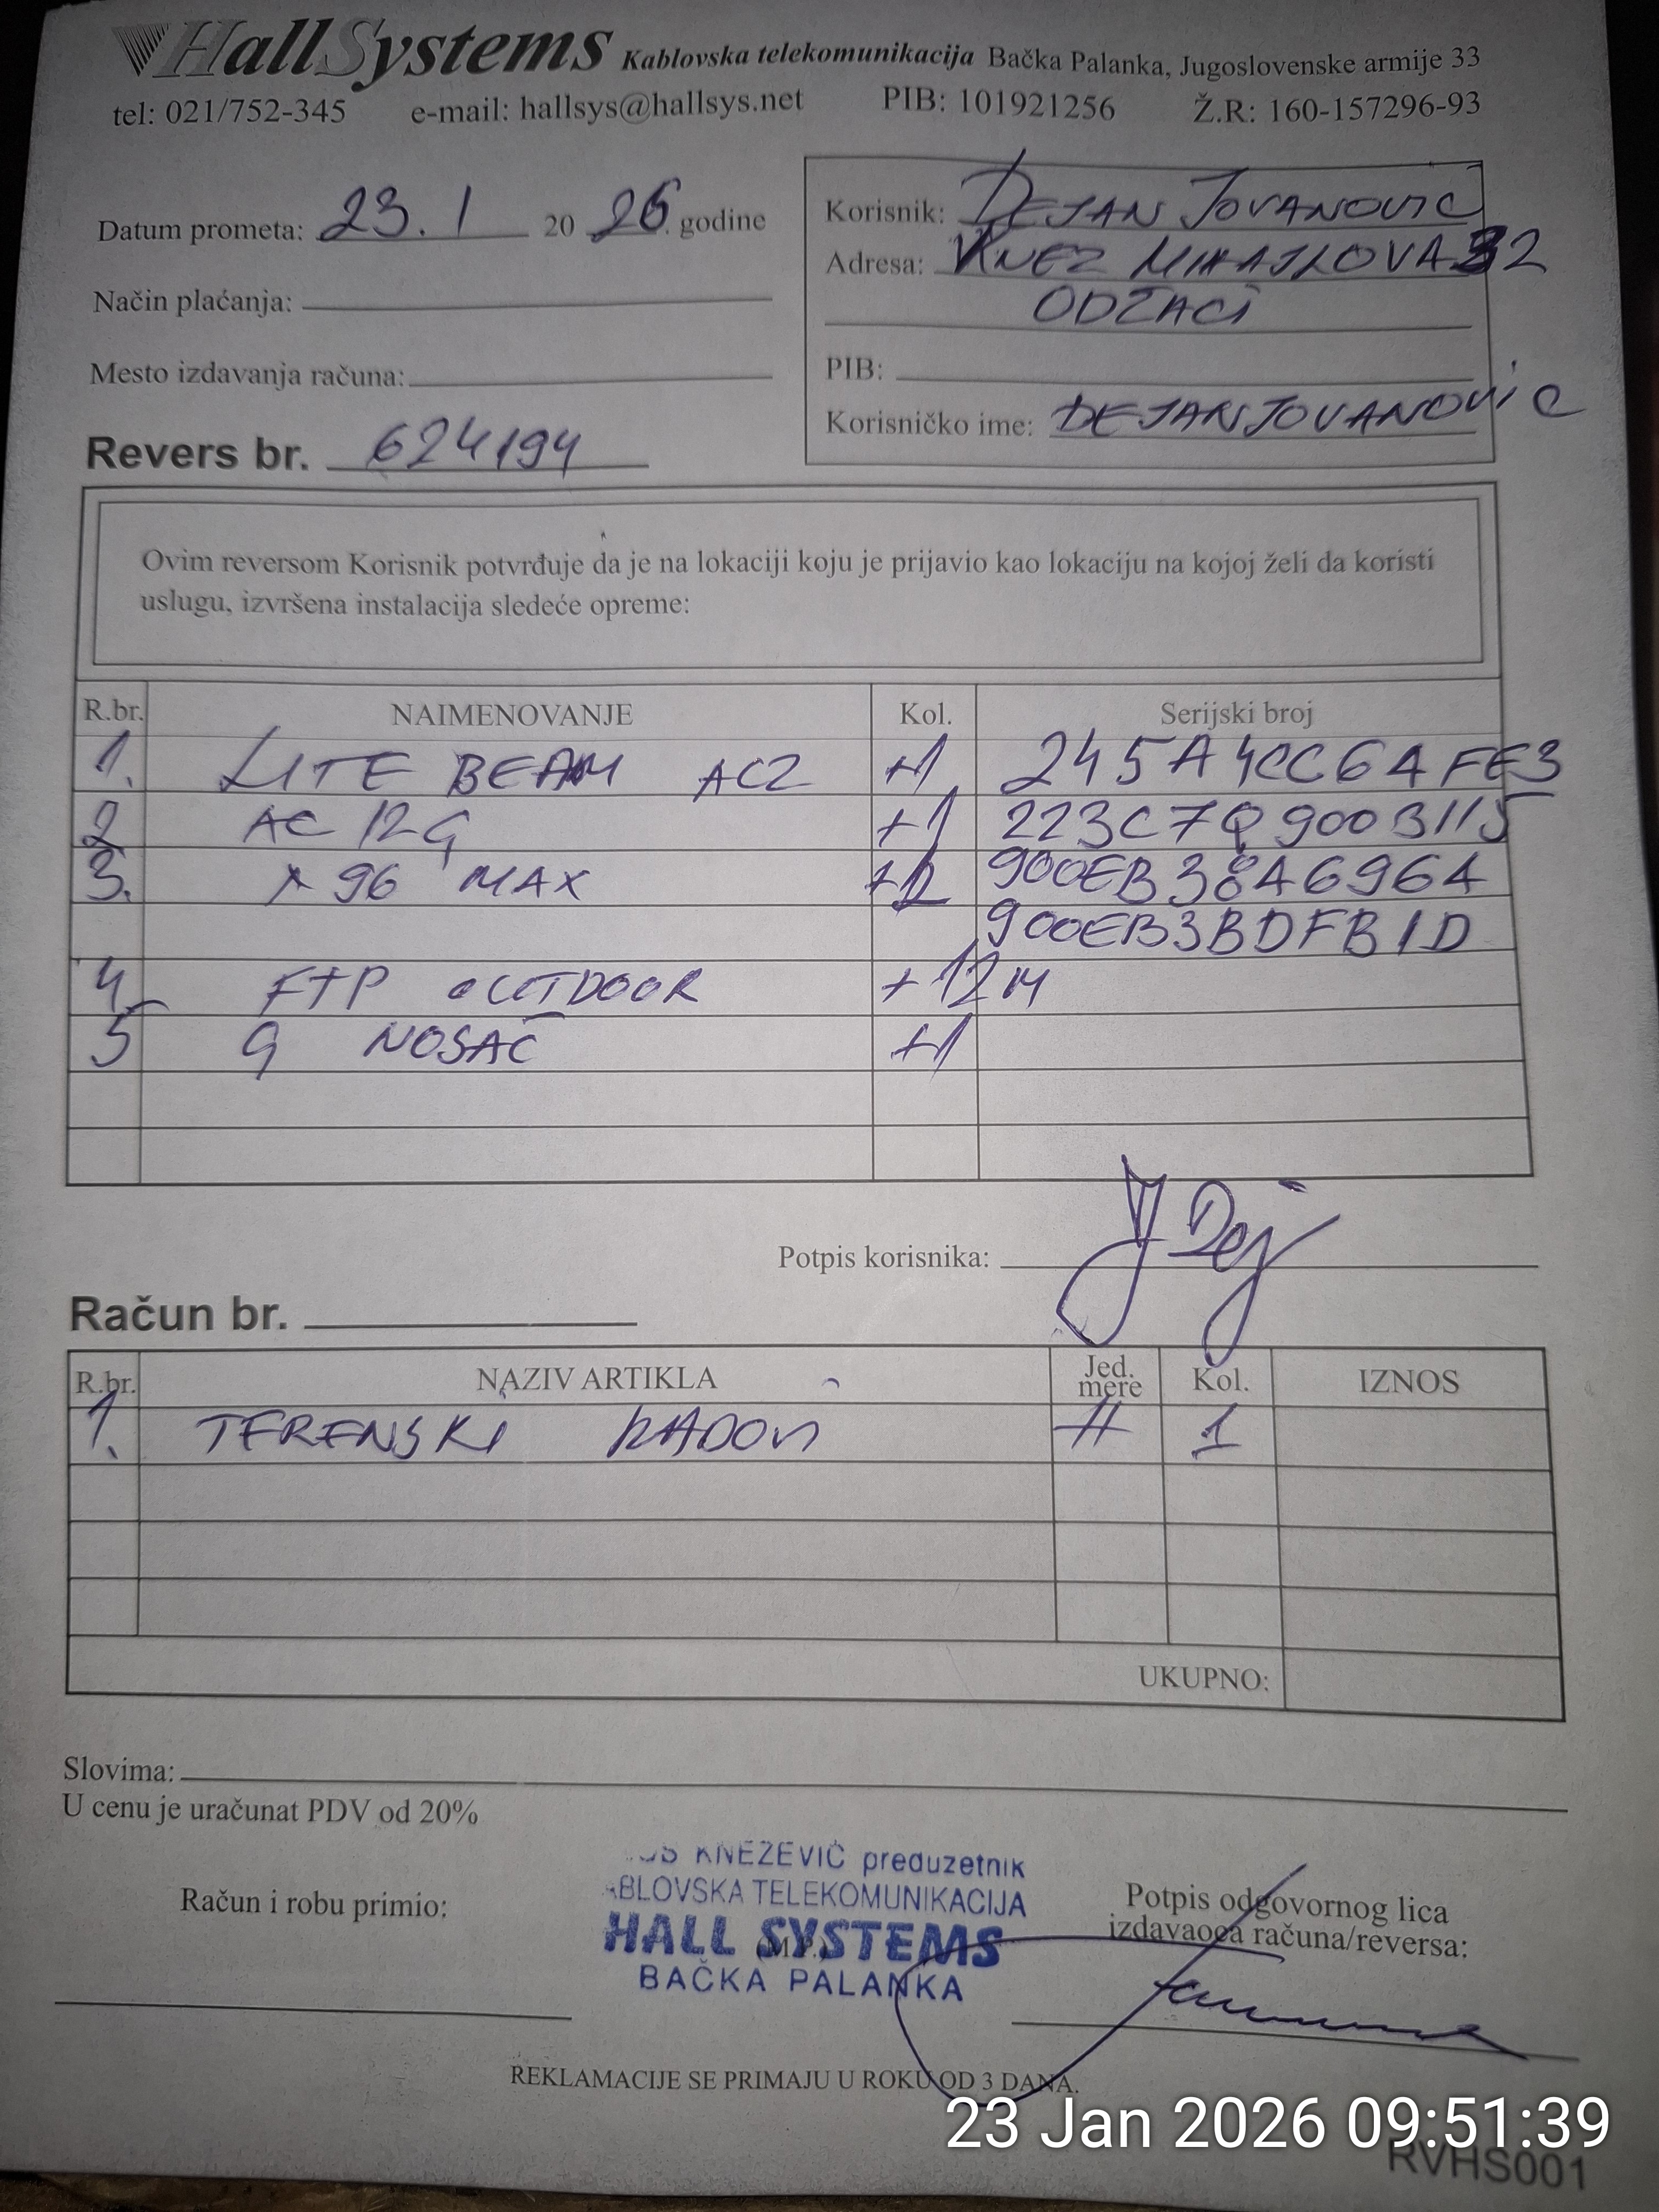 HallSystems Kablovska telekomunikacija Bačka Palanka, Jugoslovenske armije 33
tel: 021/752-345 e-mail: hallsys@hallsys.net PIB: 101921256 Ž.R: 160-157296-93
Datum prometa: 23. 1 20 26. godine
Način plaćanja:
Mesto izdavanja računa:
Revers br. 624194
Korisnik: DEJAN JOVANOVIĆ
Adresa: KNEZ MIHAJLOVA 32
ODŽACI
PIB:
Korisničko ime: DEJANJOVANOVIC
Ovim reversom Korisnik potvrđuje da je na lokaciji koju je prijavio kao lokaciju na kojoj želi da koristi
uslugu, izvršena instalacija sledeće opreme:
R.br. NAIMENOVANJE Kol. Serijski broj
1. LITE BEAM AC2 +1 245A4CC6AFE3
2 AC 12G +1 223C7Q9003115
3. X 96 MAX +2 900EB38A6964
900EB3BDFB1D
4 FTP OUTDOOR +12M
5 G NOSAČ +1
Potpis korisnika: J Dej
Račun br.
R.br. NAZIV ARTIKLA Jed. mere Kol. IZNOS
1. TERENSKI RADOVI # 1
UKUPNO:
Slovima:
U cenu je uračunat PDV od 20%
KNEŽEVIĆ preduzetnik
ABLOVSKA TELEKOMUNIKACIJA
HALL SYSTEMS
(M.P.)
BAČKA PALANKA
Račun i robu primio:
Potpis odgovornog lica
izdavaoca računa/reversa:
REKLAMACIJE SE PRIMAJU U ROKU OD 3 DANA.
23 Jan 2026 09:51:39
RVHS001